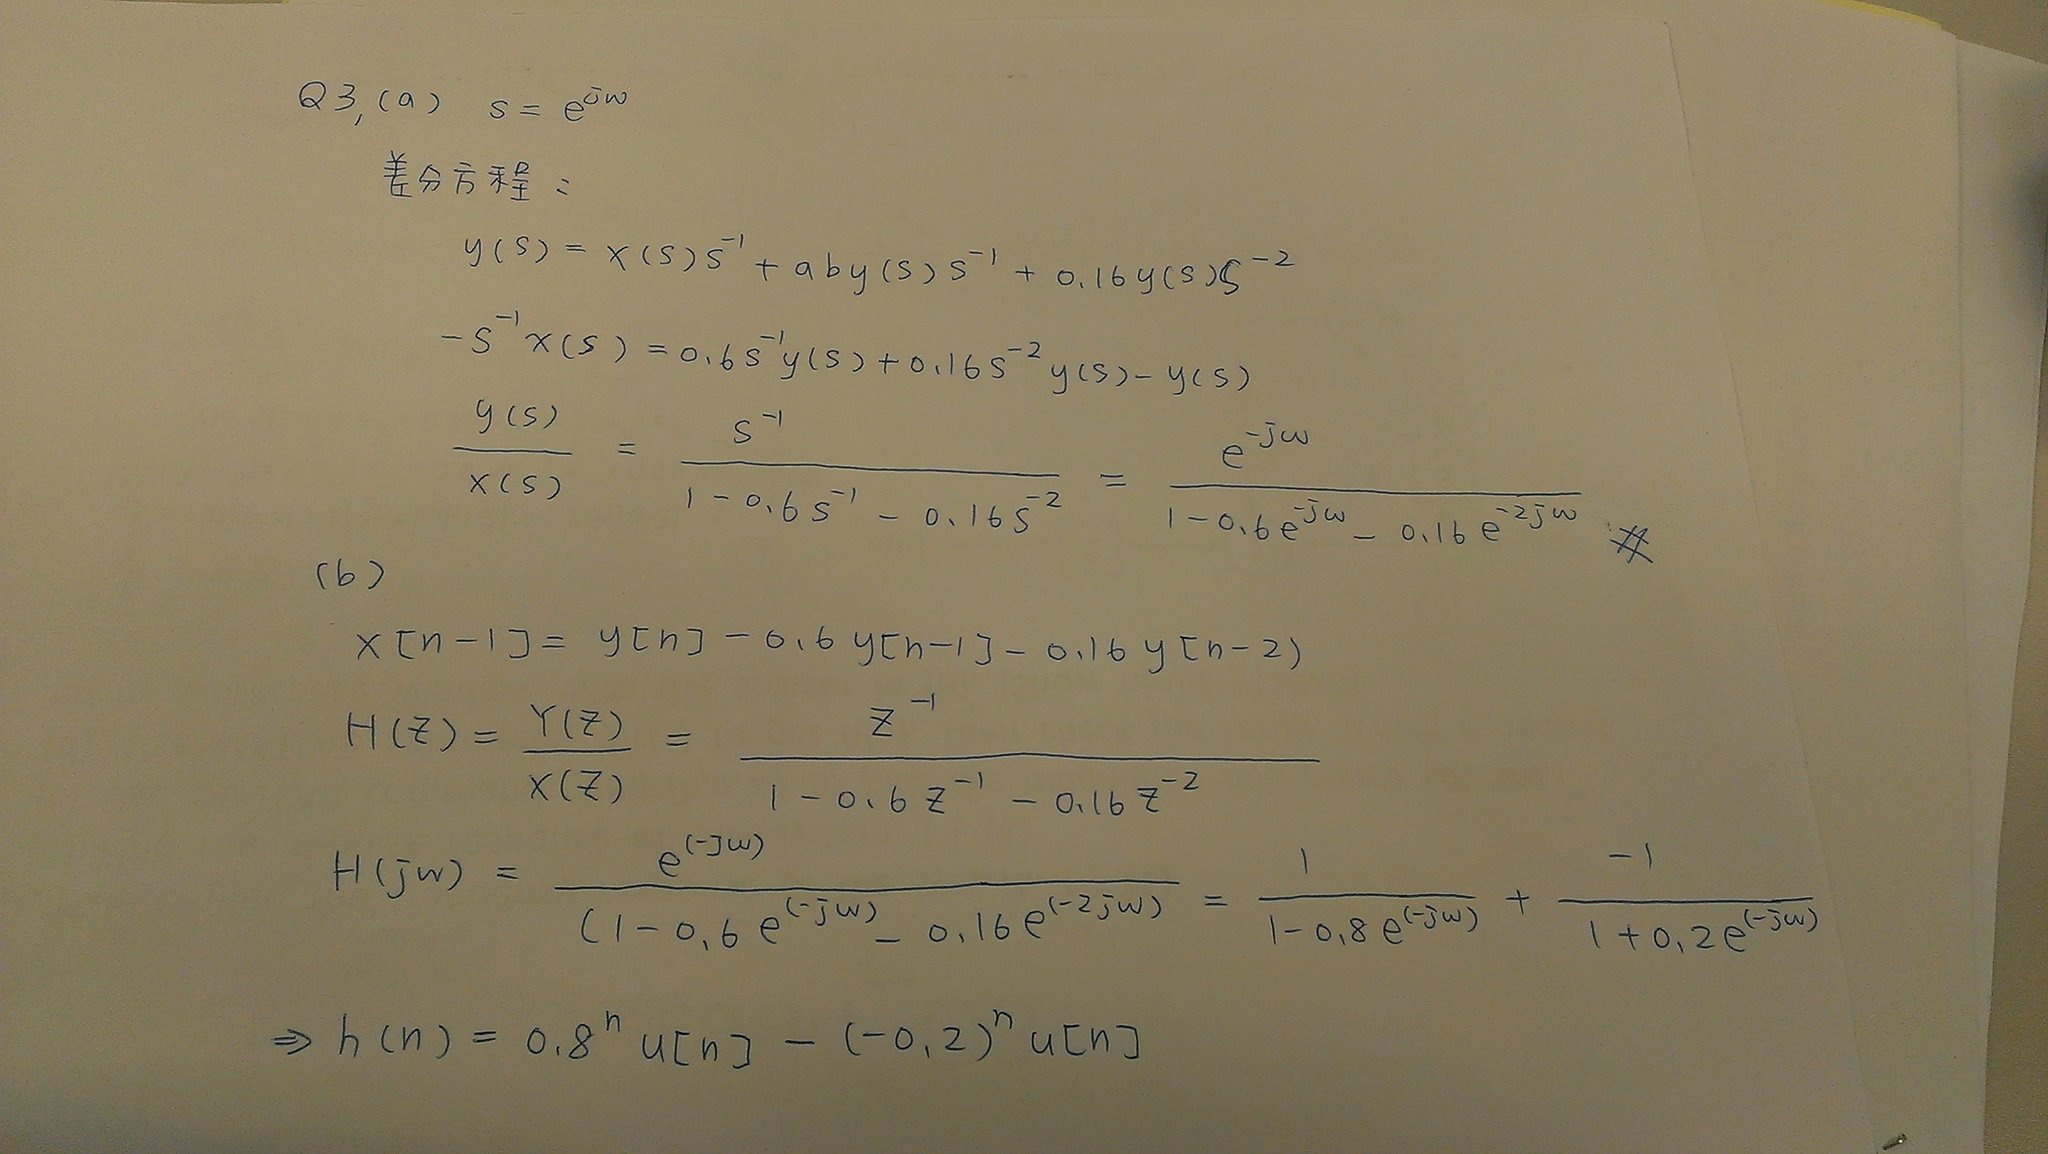 Q3,(a) s = e^{jw}
差分方程:
y(s) = x(s)s^{-1} + aby(s)s^{-1} + 0.16y(s)s^{-2}
-s^{-1}x(s) = 0.6s^{-1}y(s) + 0.16s^{-2}y(s) - y(s)
y(s)/x(s) = s^{-1}/(1-0.6s^{-1} - 0.16s^{-2}) = e^{-jw}/(1-0.6e^{-jw} - 0.16e^{-2jw}) #
(b)
x[n-1] = y[n] - 0.6y[n-1] - 0.16y[n-2)
H(Z) = Y(Z)/X(Z) = Z^{-1}/(1-0.6Z^{-1} - 0.16Z^{-2})
H(jw) = e^{(-jw)}/(1-0.6e^{(-jw)} - 0.16e^{(-2jw)} = 1/(1-0.8e^{(-jw)}) + -1/(1+0.2e^{(-jw)})
⇒ h(n) = 0.8^{n}u[n] - (-0.2)^{n}u[n]